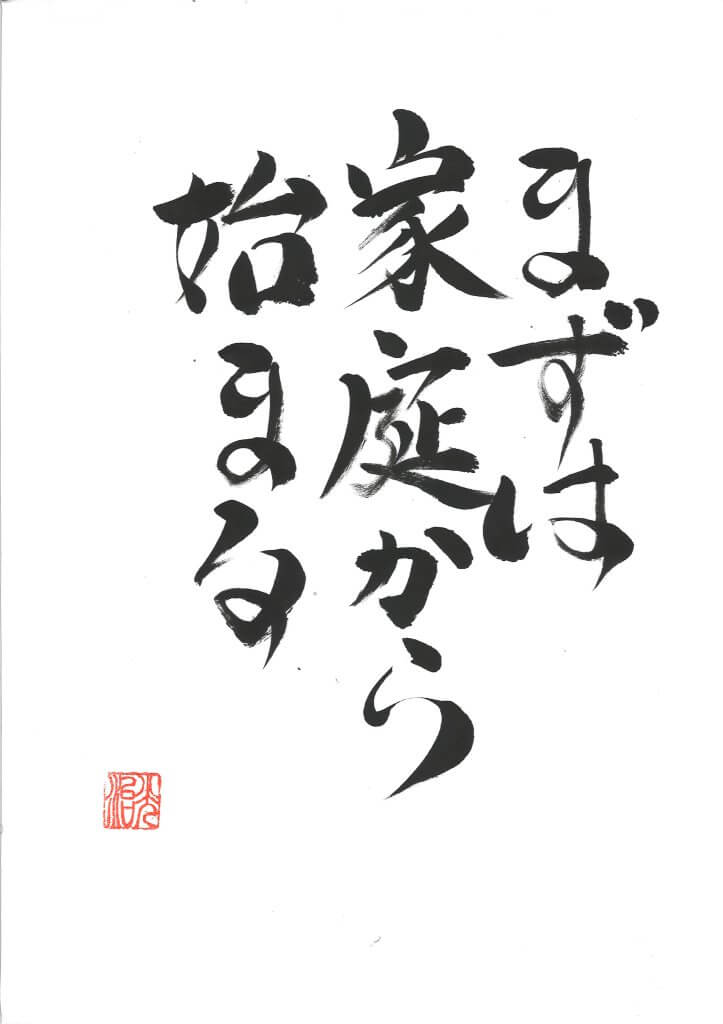 まずは
家庭から
始まる